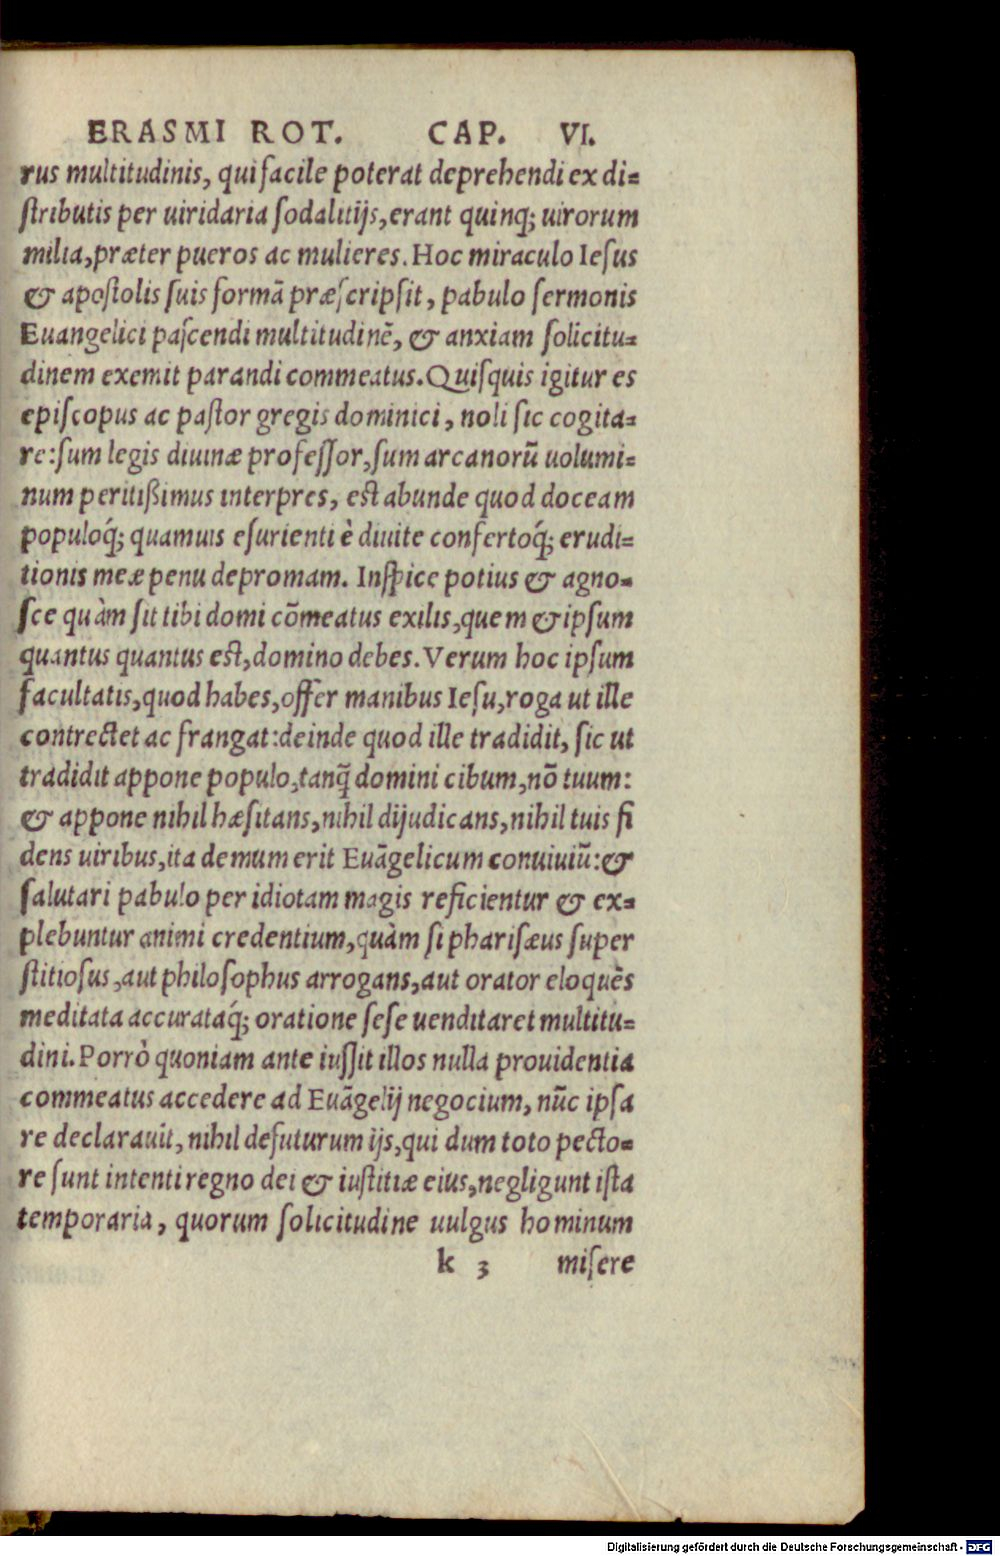 ERASMI ROT. CAP. VI.
rus multitudinis, qui facile poterat deprehendi ex di⸗
ſtributis per uiridaria ſodalitijs, erant quinq; uirorum
milia, præter pueros ac mulieres. Hoc miraculo Ieſus
& apoſtolis ſuis formā præſcripſit, pabulo ſermonis
Euangelici paſcendi multitudinē, & anxiam ſolicitu⸗
dinem exemit parandi commeatus. Quiſquis igitur es
epiſcopus ac paſtor gregis dominici, noli ſic cogita⸗
re: ſum legis diuinæ profeſſor, ſum arcanorū uolumi⸗
num peritißimus interpres, eſt abunde quod doceam
populoq́; quamuis eſurienti è diuite confertoq́; erudi⸗
tionis meæ penu depromam. Inſpice potius & agno⸗
ſce quàm ſit tibi domi cōmeatus exilis, quem & ipſum
quantus quantus eſt, domino debes. Verum hoc ipſum
facultatis, quod habes, offer manibus Ieſu, roga ut ille
contrectet ac frangat: deinde quod ille tradidit, ſic ut
tradidit appone populo, tanq̄ domini cibum, nō tuum:
& appone nihil hæſitans, nihil dijudicans, nihil tuis fi
dens uiribus, ita demum erit Euāgelicum conuiuiū: &
ſalutari pabulo per idiotam magis reficientur & ex⸗
plebuntur animi credentium, quàm ſi phariſæus ſuper
ſtitioſus, aut philoſophus arrogans, aut orator eloquēs
meditata accurataq́; oratione ſeſe uenditaret multitu⸗
dini. Porrò quoniam ante iuſſit illos nulla prouidentia
commeatus accedere ad Euāgelij negocium, nūc ipſa
re declarauit, nihil defuturum ijs, qui dum toto pecto⸗
re ſunt intenti regno dei & iuſtitiæ eius, negligunt iſta
temporaria, quorum ſolicitudine uulgus hominum
k 3 miſere
Digitalisierung gefördert durch die Deutsche Forschungsgemeinschaft - DFG